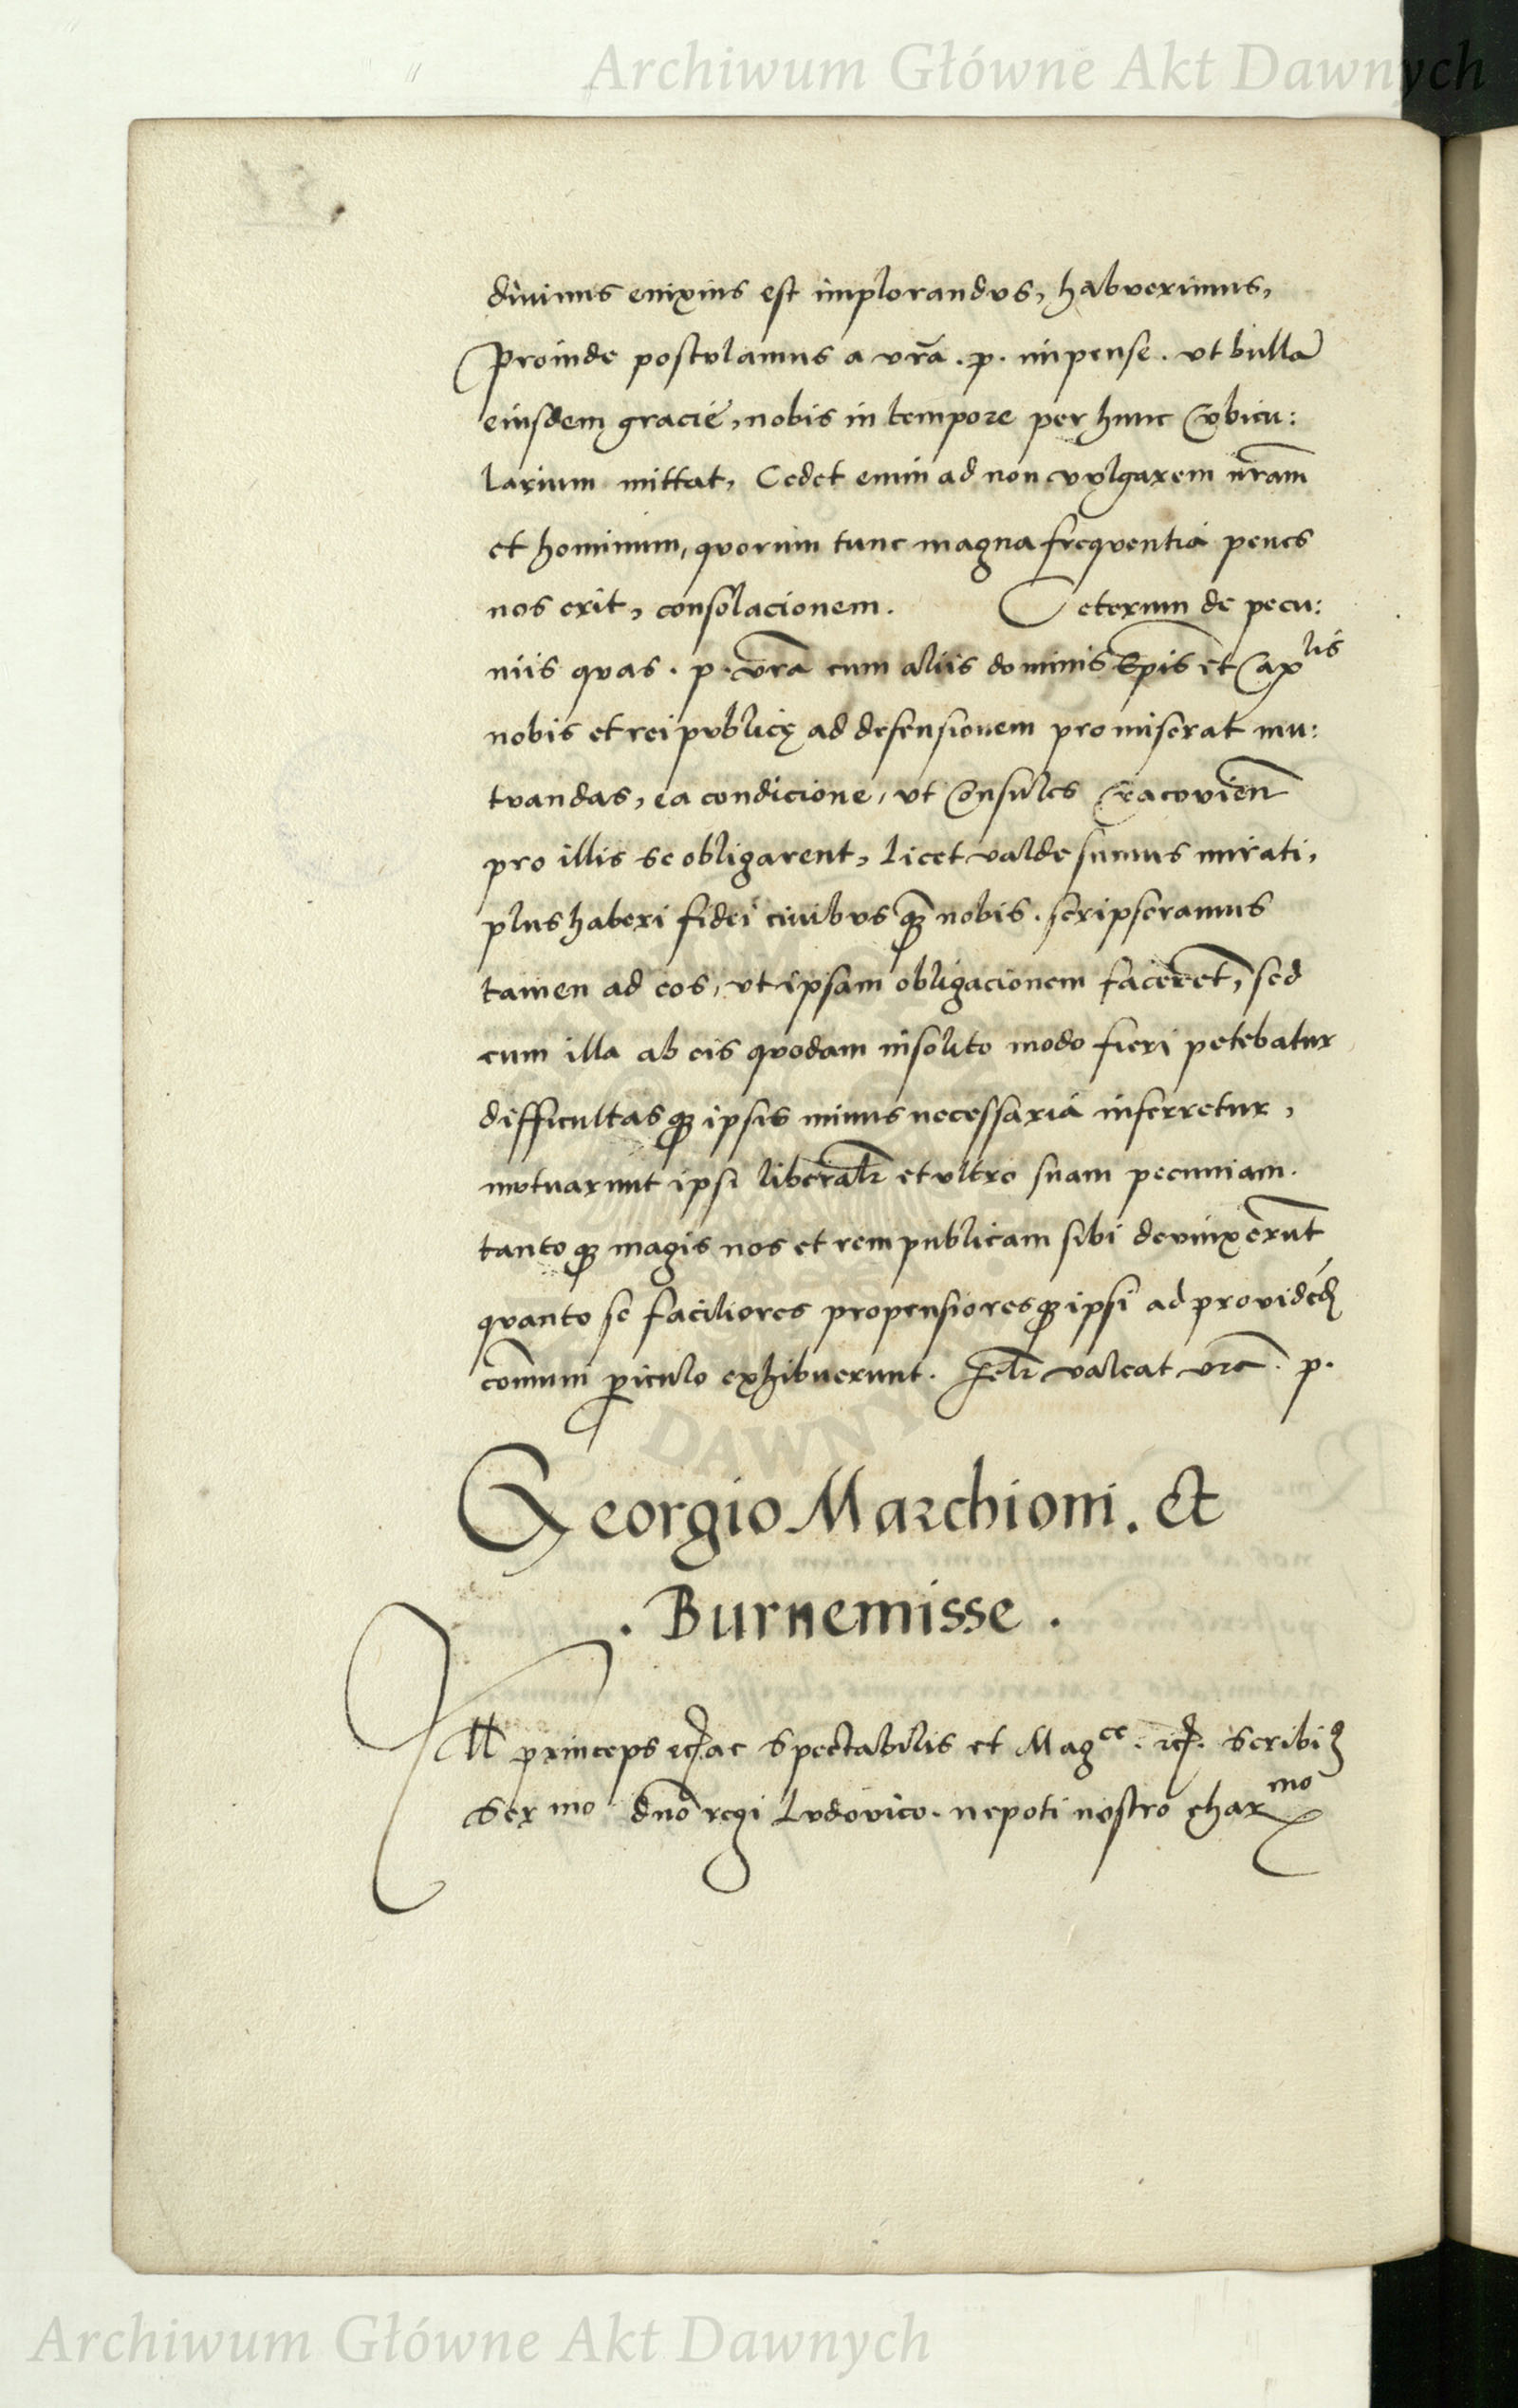 Archiwum Główne Akt Dawnych
diuinus enixius est implorandus, habuerimus,
Proinde postulamus a vr̃a . p . impense . vt bullã
eiusdem gracie, nobis in tempore per hunc Cubicu:
larium mittat, Cedet enim ad non vulgarem nr̃am
et hominum, quorum tunc magna frequentia penes
nos erit, consolacionem. Ceterum de pecu:
niis quas . p . vr̃a cum aliis dominis Ep̃is et Capˡⁱˢ
nobis et rei publicę ad defensionem promiserat mu:
tuandas, ea condicione, vt Consules Cracouien̄
pro illis se obligarent, licet valde sumus mirati,
plus haberi fidei ciuibus q̃ȝ nobis . scripseramus
tamen ad eos, vt ipsam obligacionem facerẽt, sed
cum illa ab eis quodam insolito modo fieri petebatur
difficultasqȝ ipsis minus necessaria inferretur,
mutuarunt ipsi liberalr̃ et vltro suam pecuniam.
tantoqȝ magis nos et rempublicam sibi deuinxerũt
quanto se faciliores propensioresqȝ ipsi ad prouidẽd
com̃uni ꝑiculo exhibuerunt. Felr̃ valeat vrã . p.
Georgio Marchioni. Et
. Burnemisse .
Ill̃ princeps etc̃ ac Spectabilis et Magᶜᵉ . etc̃. Scribimꝰ
Serᵐᵒ dn̄o regi Ludouico . nepoti nostro charᵐᵒ
Archiwum Główne Akt Dawnych